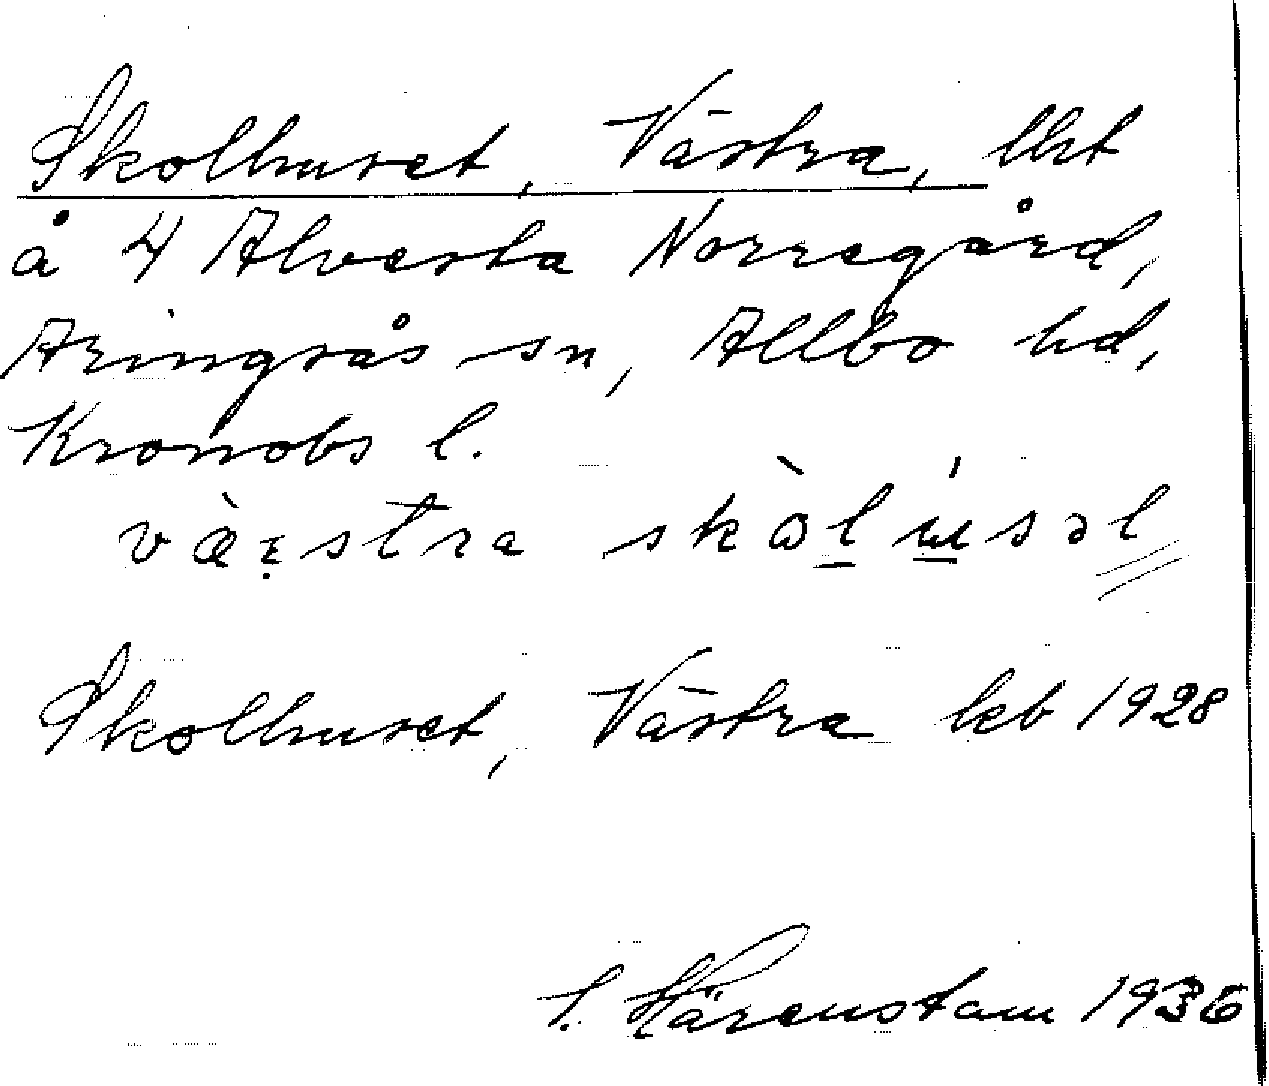 Skolhuset, Västra, lht
å 4 Alvesta Norregård,
Aringsås sn, Allbo hd,
Kronobs l.
Skolhuset, Västra hcb 1928
Härenstam 1936